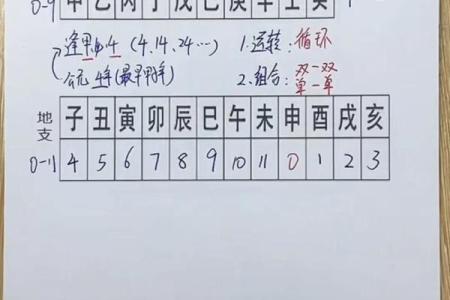 0-9 甲 乙 丙 丁 戊 己 庚 辛 壬 癸
逢甲必4 (4.14.24…) 1.运转:循环
公元4年(最早甲年) 2.组合:双一双
单一单
地支 子 丑 寅 卯 辰 巳 午 未 申 酉 戌 亥
0-11 4 5 6 7 8 9 10 11 0 1 2 3